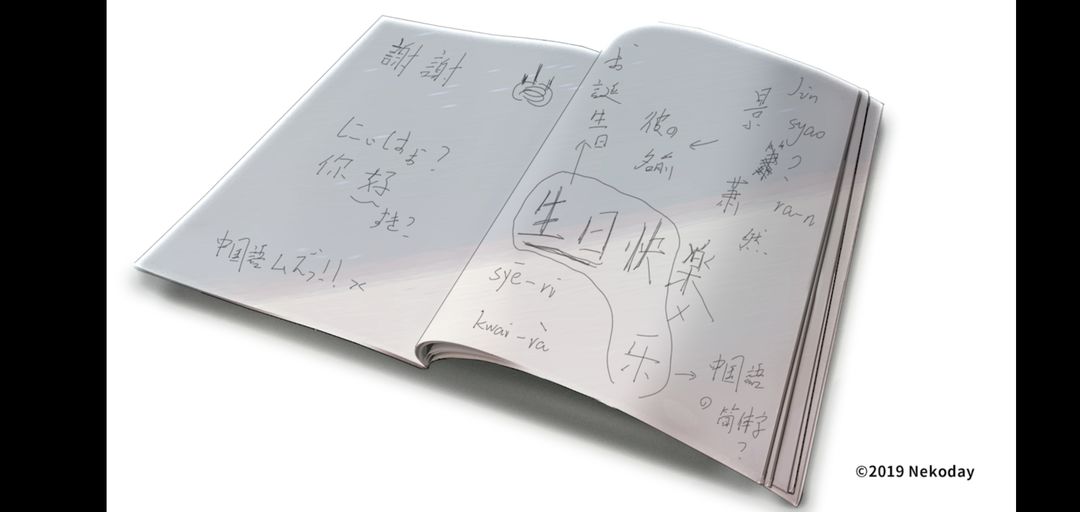 謝謝
にぃはぉ?
你好
すき?
中国語ムズっ!! ×
お誕生日
彼の
名前
←
景
蕭
然
Jin
syao
?
ra-n
生日快楽
×
乐
syē-ri
kwai-rà
→ 中国語
の
简体字
?
©2019 Nekoday